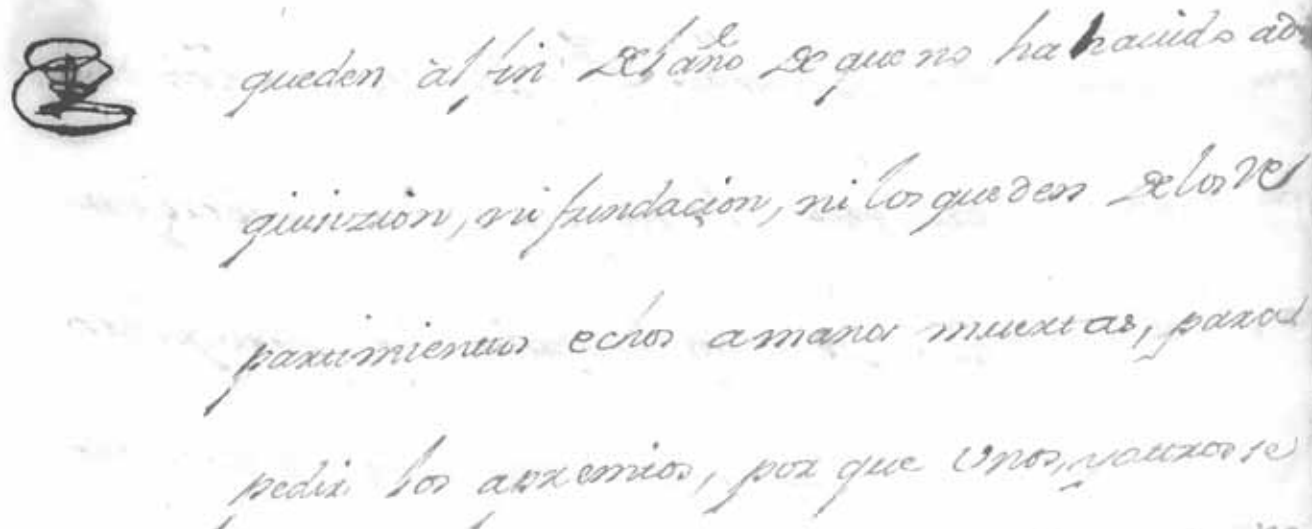 queden al fin del año de que no ha hacido ad
quisizion, ni fundacion, ni los queden de los re
partimientos echos a manos muertas, para
pedir los apremios, por que unos, y otros se